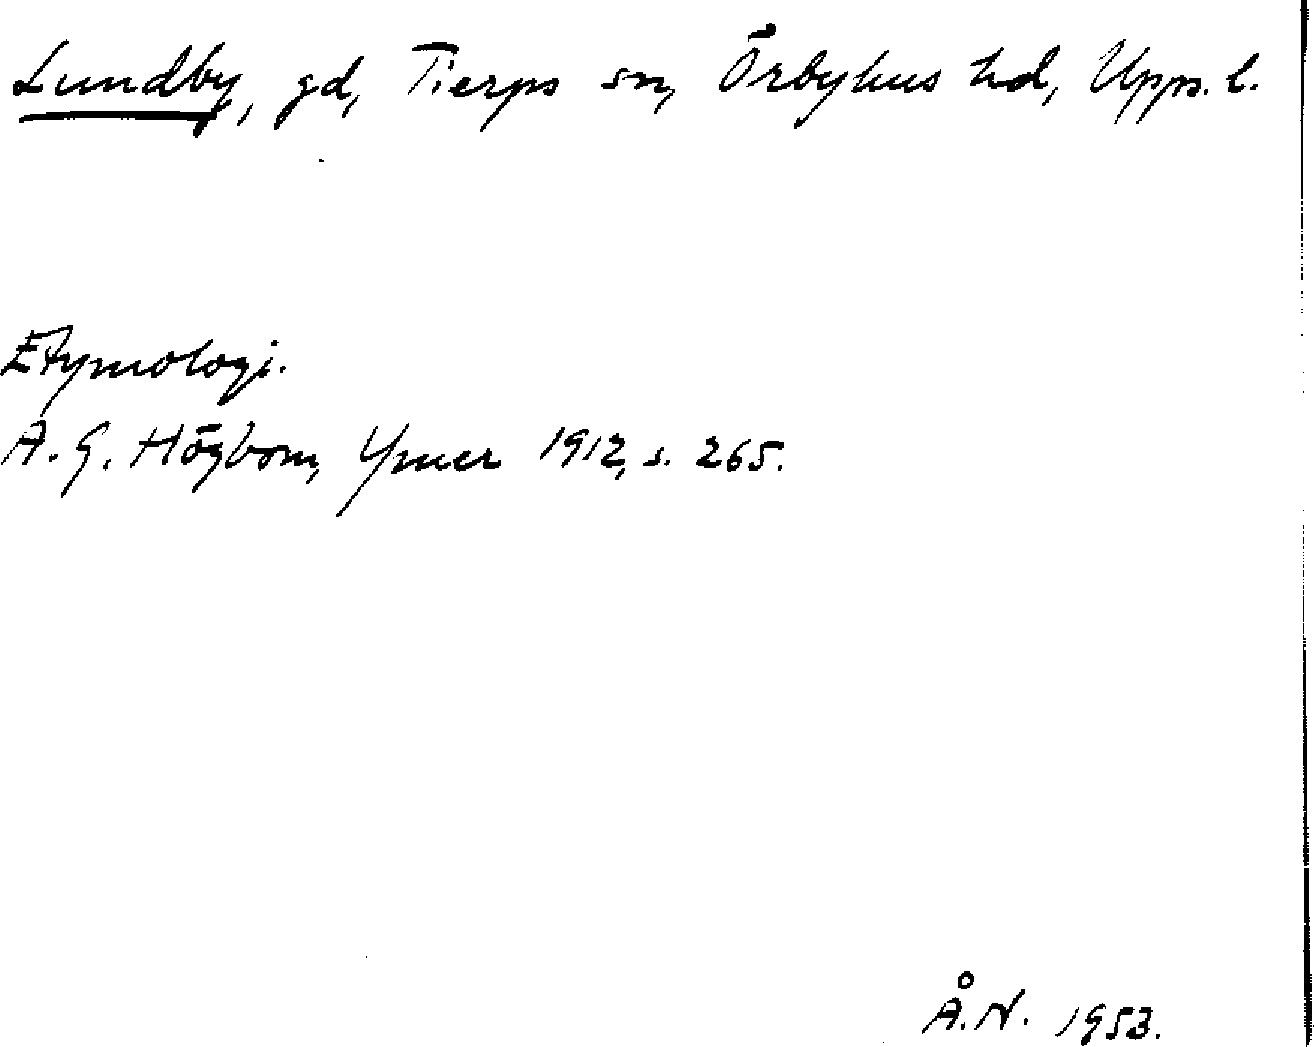 Lundby, gd, Tierps sn, Örbyhus hd, Upps. l.
Etymologi.
A. G. Högbom, Ymer 1912, s. 265.
Å.N. 1953.